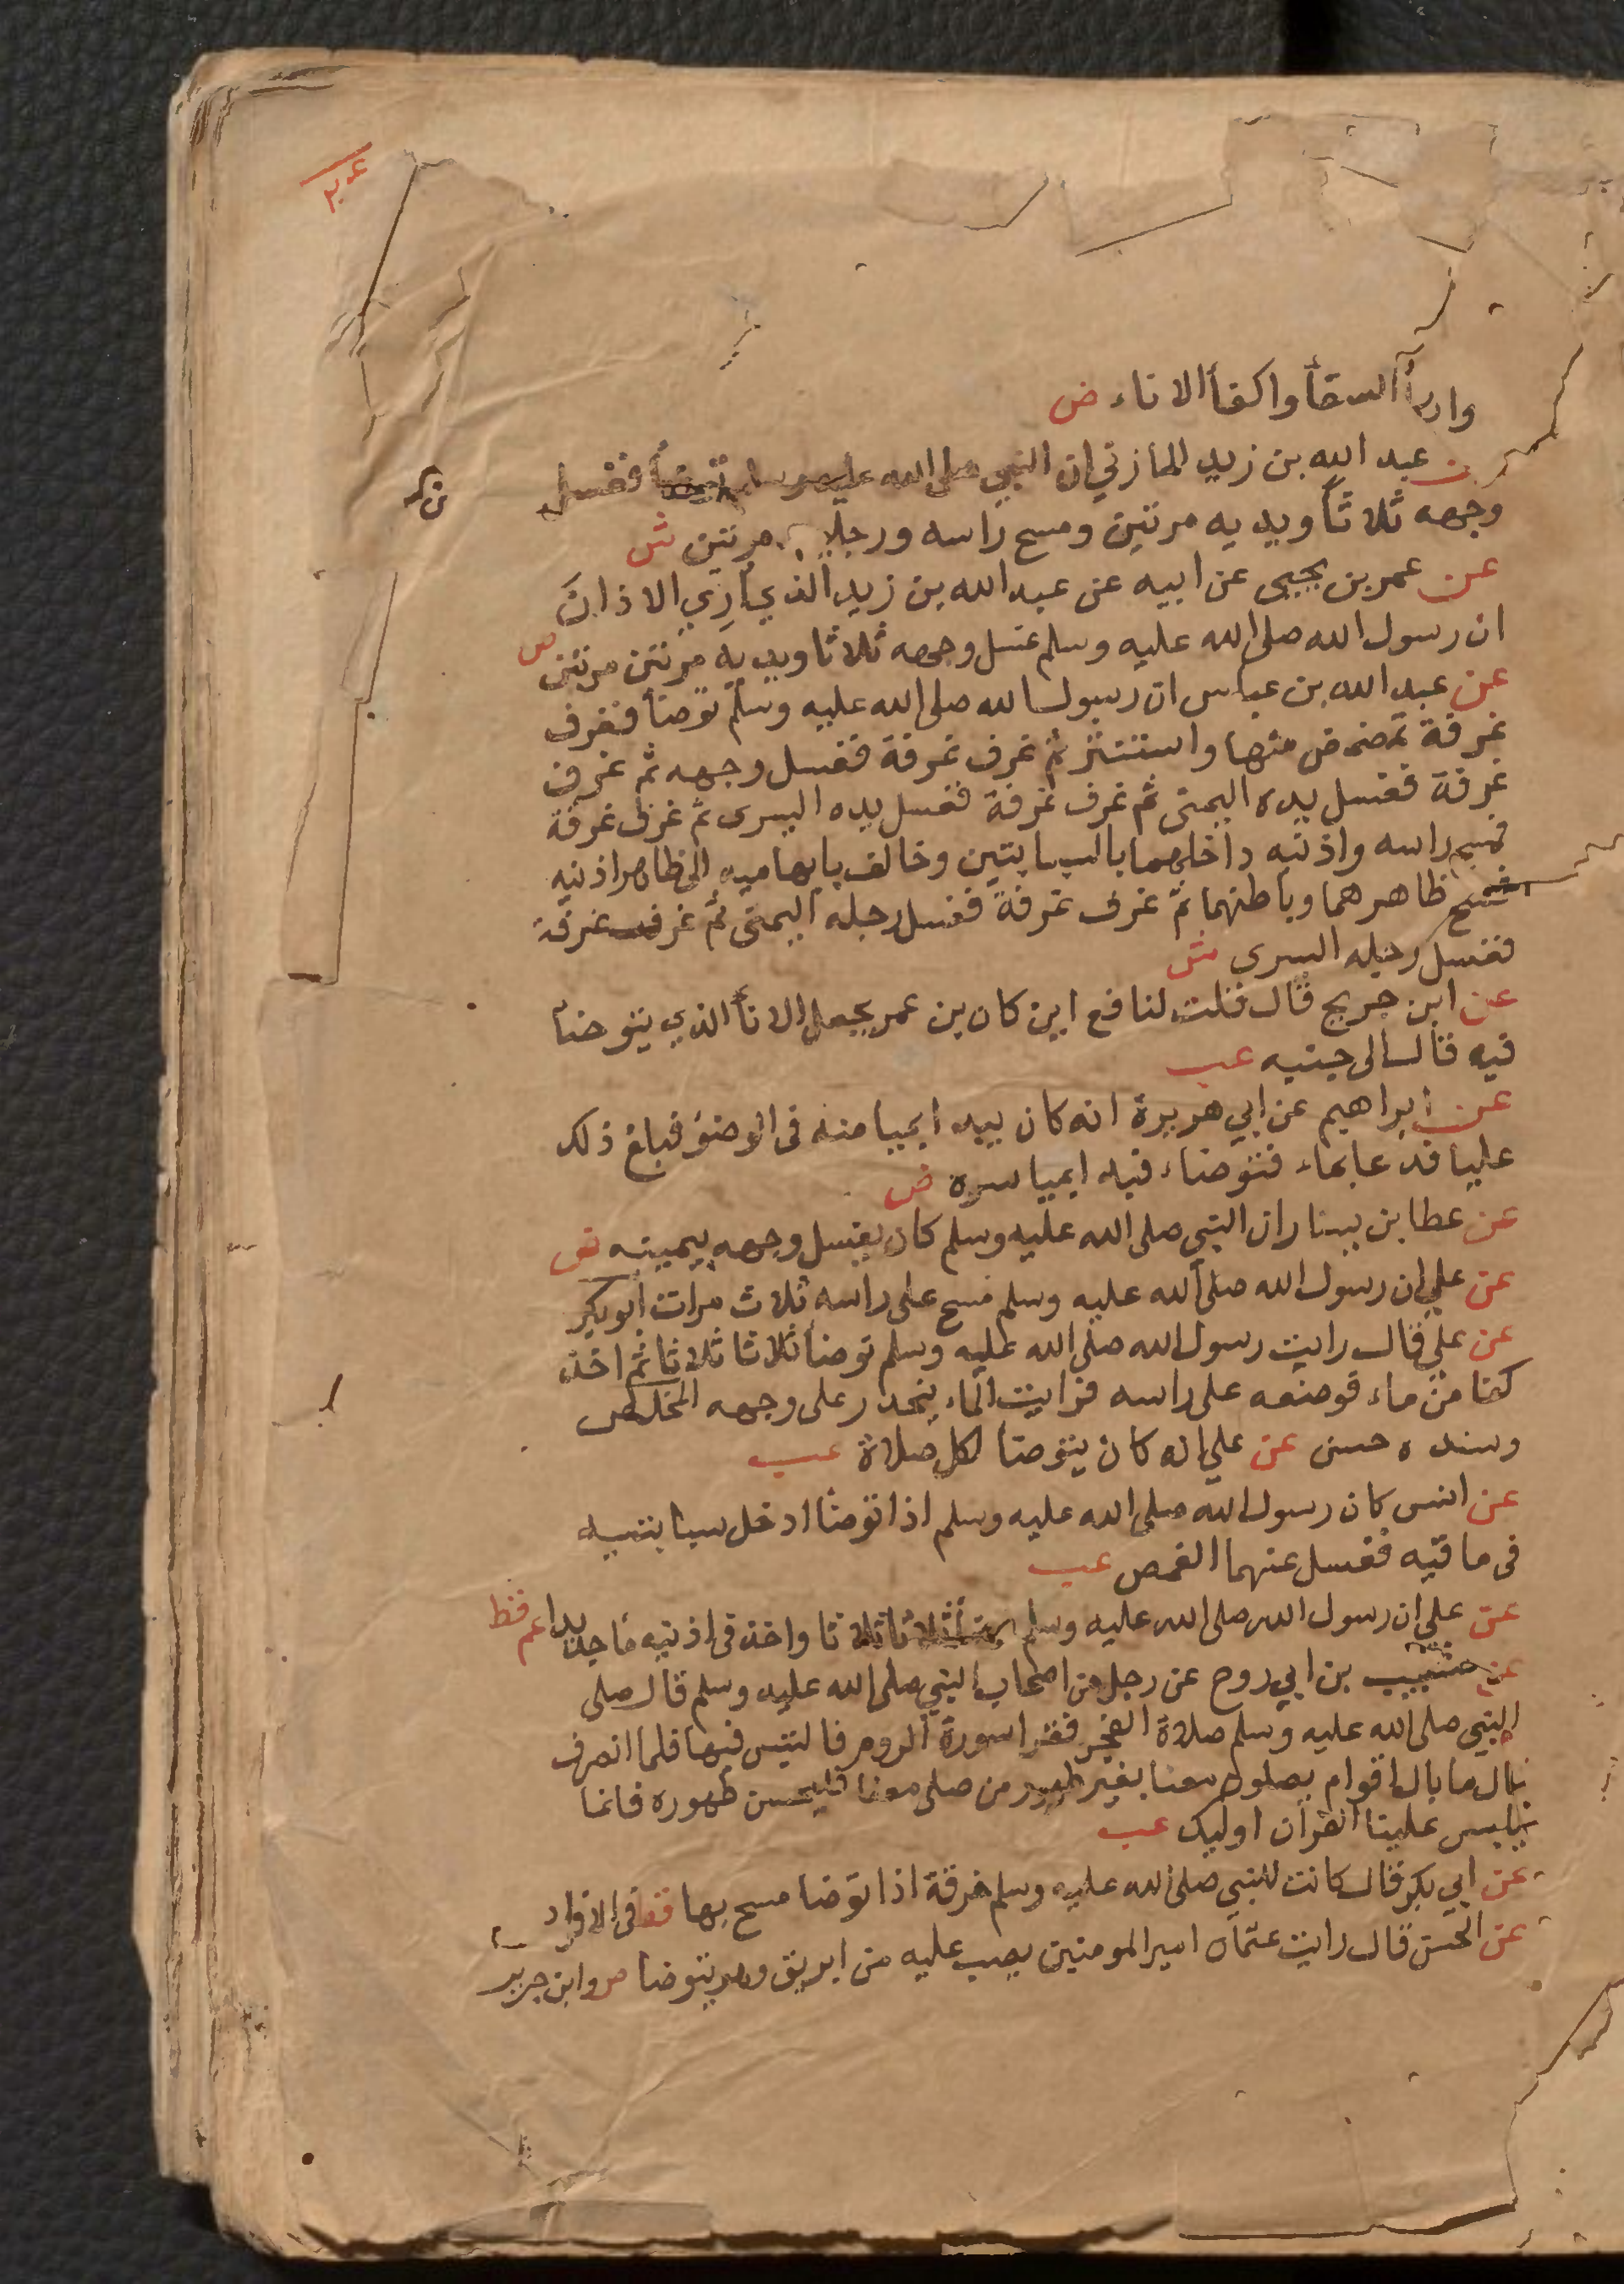 ٢٠٤
السقأ واكفأ الاناء ض
عن عبد الله بن زيد المازني ان النبي صلى الله عليه وسلم توضأ فغسل
وجهه ثلاثاً ويديه مرتين ومسح راسه ورجليه مرتين ش
عن عمر بن يحيى عن ابيه عن عبد الله بن زيد الذي أُرِي الاذانَ
ان رسول الله صلى الله عليه وسلم غسل وجهه ثلاثا ويديه مرتين مرتين ص
عن عبد الله بن عباس ان رسول الله صلى الله عليه وسلم توضأ فغرف
غرفة تمضمض منها واستنثر ثم غرف غرفة فغسل وجهه ثم غرف
غرفة فغسل يده اليمنى ثم غرف غرفة فغسل يده اليسرى ثم غرف غرفة
فمسح راسه واذنيه داخلهما بالسبابتين وخالف بابهاميه الى ظاهر اذنيه
فمسح ظاهرهما وباطنهما ثم غرف غرفة فغسل رجله اليمنى ثم غرف غرفة
فغسل رجله اليسرى ش
عن ابن جريج قال قلت لنافع اين كان بن عمر يجعل الانأ الذي يتوضأ
فيه قال الى جنبه عب
عن ابراهيم عن ابي هريرة انه كان يبدا بميامنه في الوضؤ فبلغ ذلك
عليا فدعا بماء فتوضاء فبدا بمياسره ض
عن عطا بن يسار ان النبي صلى الله عليه وسلم كان يغسل وجهه بيمينه ض
عن علي ان رسول الله صلى الله عليه وسلم مسح على راسه ثلاث مرات ابو بكر
عن علي قال رايت رسول الله صلى الله عليه وسلم توضأ ثلاثا ثلاثا ثم اخذ
كفا من ماء فوضعه على راسه فرايت الماء ينحدر على وجهه المخلص
وسنده حسن عن علي انه كان يتوضأ لكل صلاة عب
عن انس كان رسول الله صلى الله عليه وسلم اذا توضأ ادخل سبابتيه
في ماقيه فغسل عنهما الغمص عب
عن علي ان رسول الله صلى الله عليه وسلم توضأ ثلاثا ثلاثا واخذ في اذنيه ما جديدا عم قط
عن شبيب بن ابي روح عن رجل من اصحاب النبي صلى الله عليه وسلم قال صلى
النبي صلى الله عليه وسلم صلاة الفجر فقرا سورة الروم فالتبس فيها فلما انصرف
قال ما بال اقوام يصلون معنا بغير طهور من صلى معنا فليحسن طهوره فانما
يلبس علينا القرآن اوليك عب
عن ابي بكر قال كانت للنبي صلى الله عليه وسلم خرقة اذا توضا مسح بها قط في الافراد
عن الحسن قال رايت عثمان امير المومنين يصب عليه من ابريق وهو يتوضا ص وابن جرير